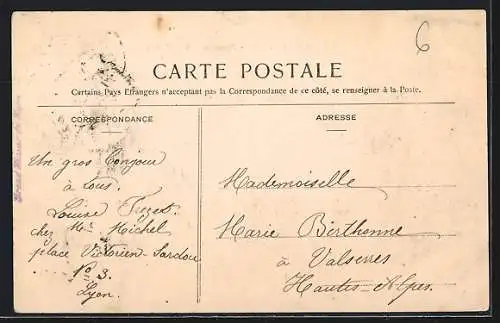 6
CARTE POSTALE
Certains Pays Etrangers n'acceptant pas la Correspondance de ce côté, se renseigner à la Poste.
CORRESPONDANCE
ADRESSE
Un gros bonjour
à tous.
Louise
chez Me Michel
place Victorien-Sardou
No 3.
Lyon.
Mademoiselle
Marie Berthonne
à Valserres
Hautes-Alpes.